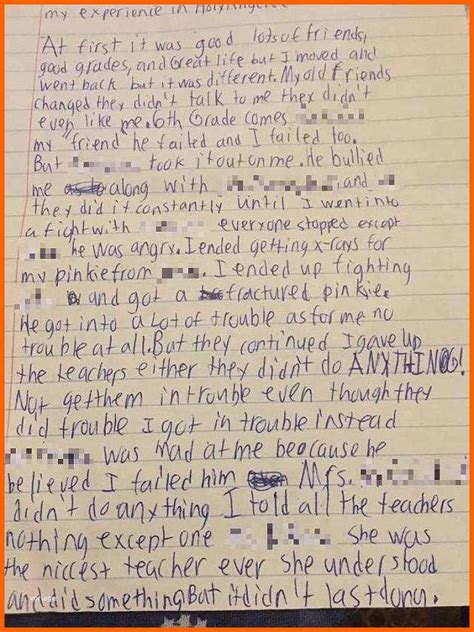 my experience in Holy Angels
At first it was good lots of friends,
good grades, and Great life but I moved and
went back but it was different. My old friends
changed they didn't talk to me they didn't
even like me. 6th Grade comes
my "friend" he failed and I failed too.
But took it out on me. He bullied
me along with , and
they did it constantly until I went into
a fight with everyone stopped except
he was angry. I ended getting x-rays for
my pinkie from . I ended up fighting
and got a fractured pinkie.
He got into a Lot of trouble as for me no
trouble at all. But they continued I gave up
the teachers either they didn't do ANYTHING!
Not get them in trouble even though they
did trouble I got in trouble instead
was mad at me beocause he
believed I failed him Mrs.
didn't do anything I told all the teachers
nothing except one She was
the niccest teacher ever she understood
and did something But it didn't last long.